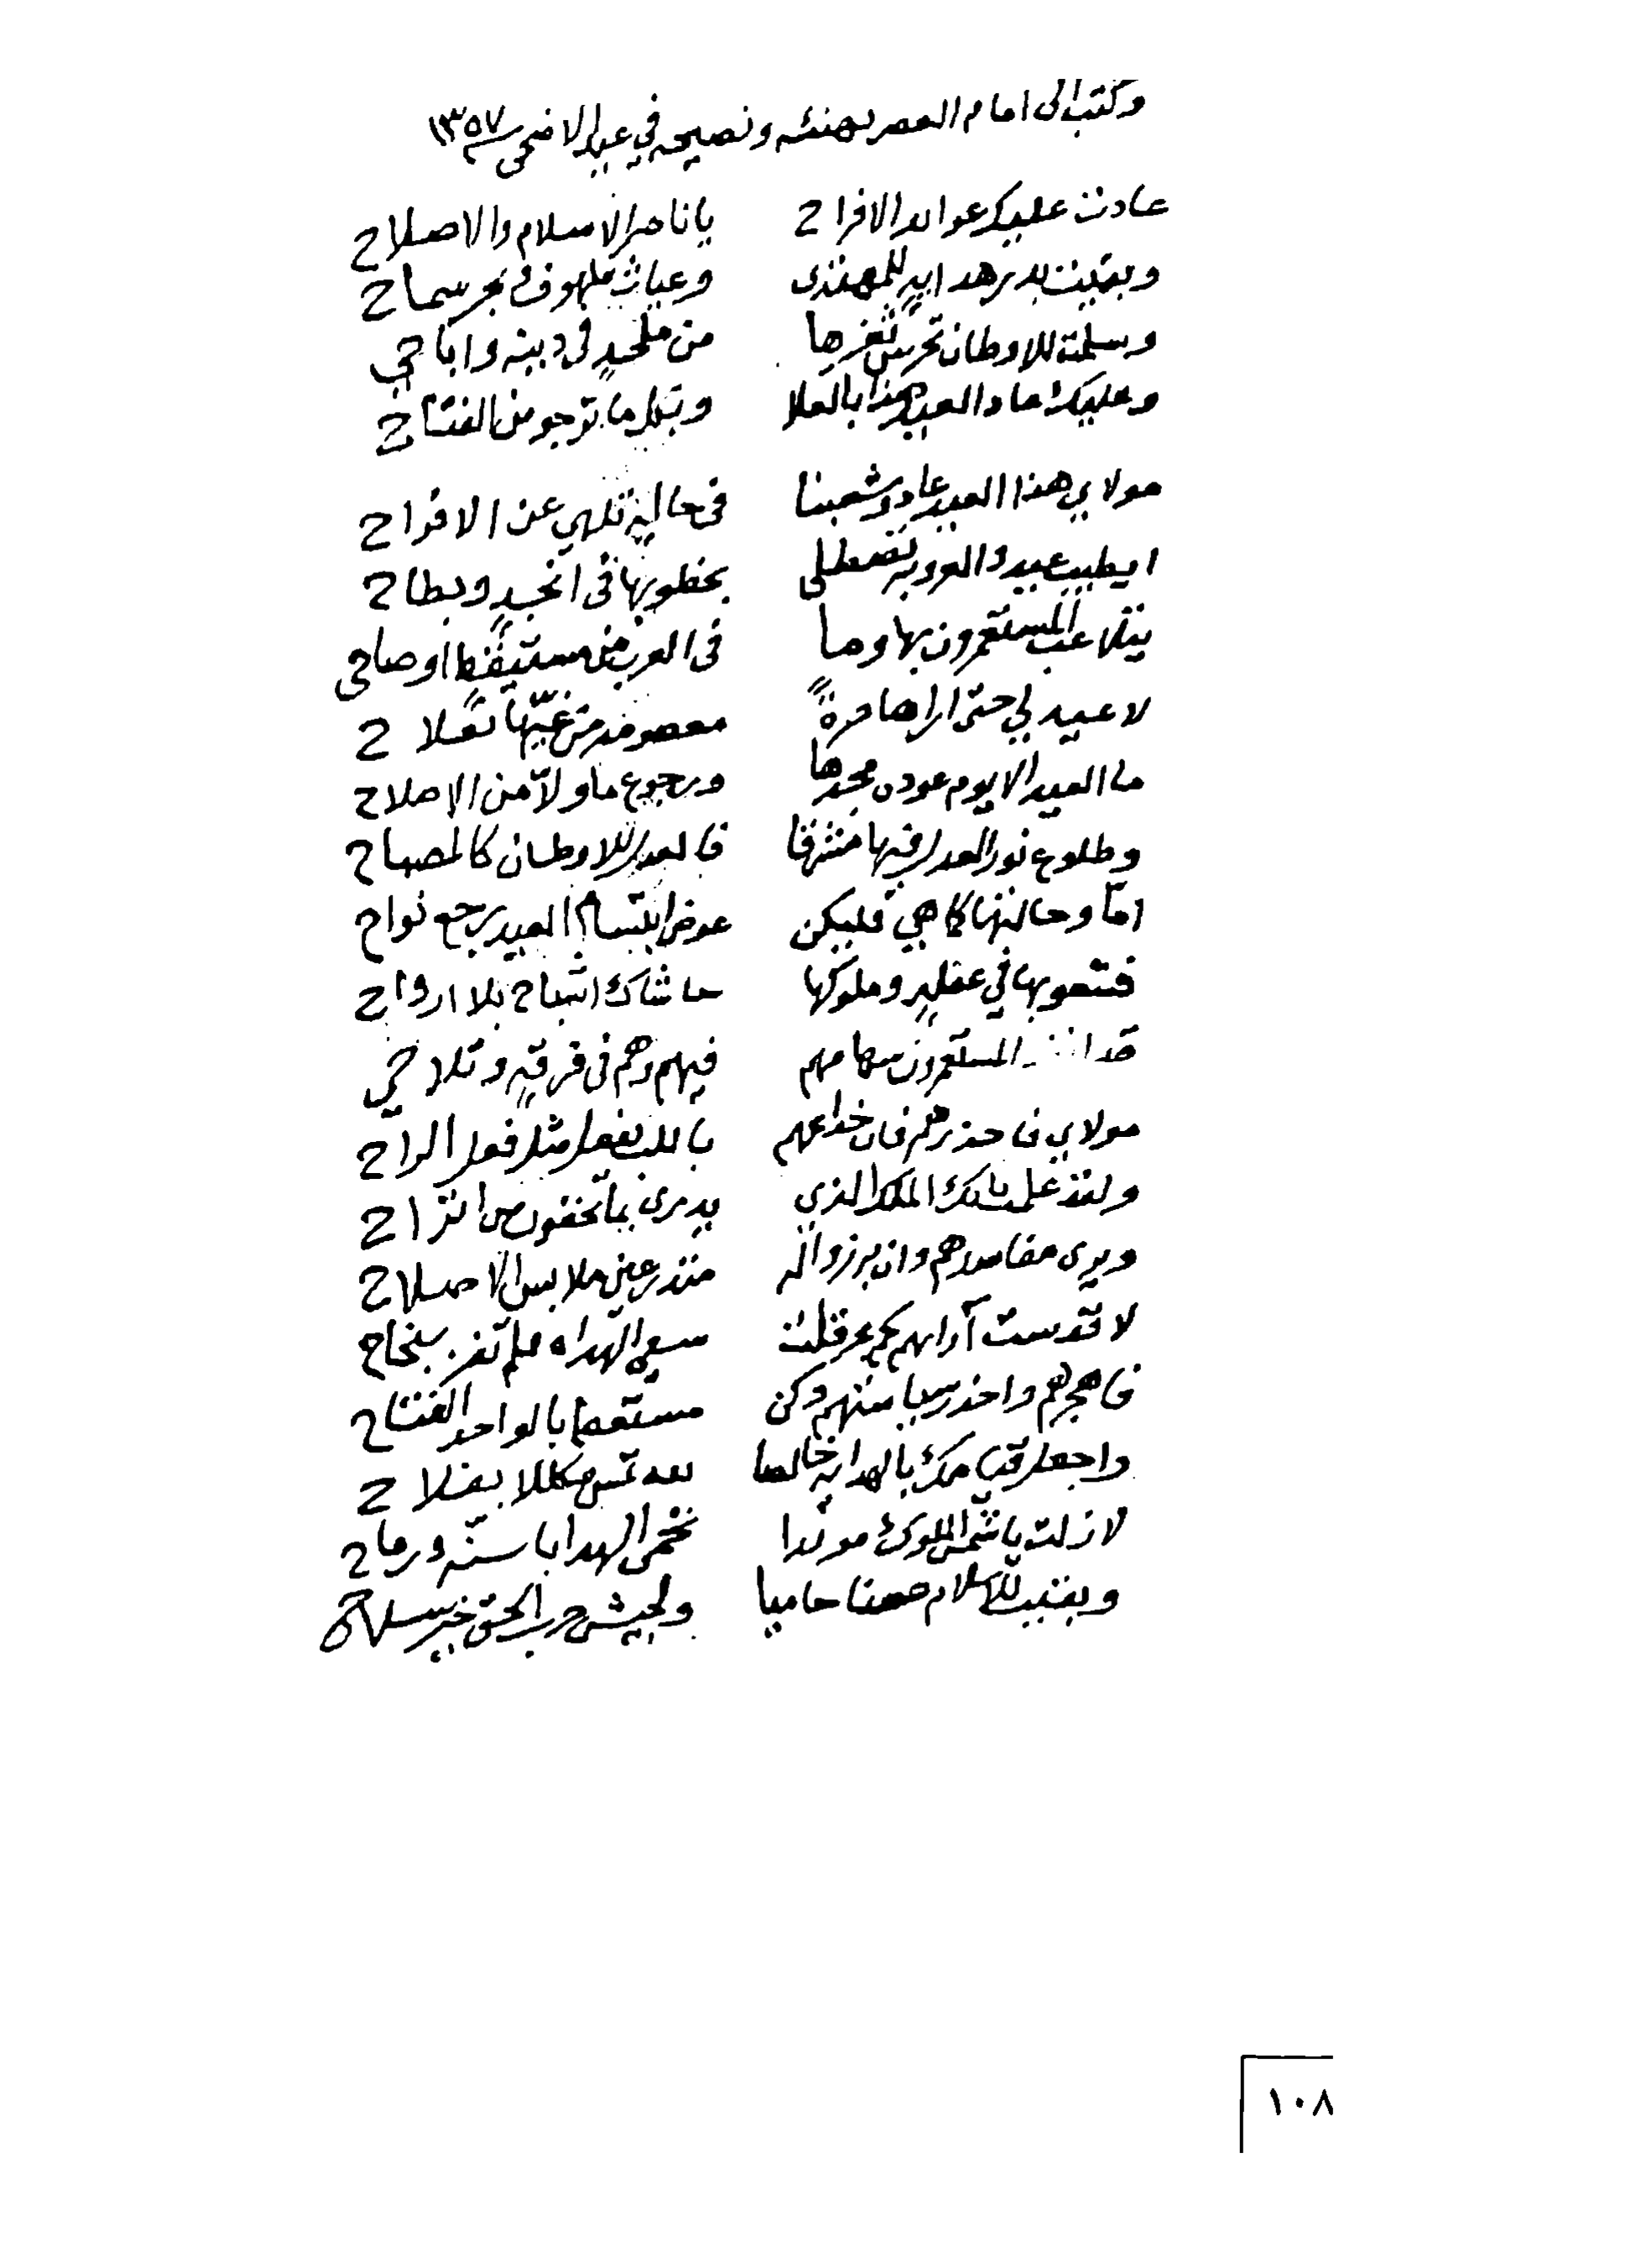 وكتب الى امام العصر بهنئه ونصيحه في عيد الاضحى سنة ١٣٥٧
عادت عليك عوائد الافراح يا ناصر الاسلام والاصلاح
وبقيت بدر هداية للمهتدى وغياث ملهوف وبحر سماح
وسلمت للاوطان تحرس ثغرها من ملحدٍ فى دينه واباحي
وعليك عاد العيد هذا بالعلا وبكل ما ترجو من الفتاح
مولاي هذا العيد عاد وشعبنا فى حاليةٍ تلهي عن الافراح
ايطيب عيد والعروبة تصطلى بخطوبها فى انجدٍ وبطاح
يتلاعب المستعمرون بها وما فى العرب من مستيقظ او صاحى
لا عيد لي حتى اراها مرةً معصومة من غيّها بفلاح
ما العيد الا يوم عودة مجدها ورجوع ما ولّا من الاصلاح
وطلوع نور العدل فيها مشرقا فالعدل للاوطان كالمصباح
امّا وحالتها كما هي فليكن عوض ابتسام العيد رجع نواح
فشعوبها في غفلةٍ وملوكها حاشاك اشباح بلا ارواح
قد المستعمرون سهامهم فيهم وهم فى فرقةٍ وتلاحي
مولاي فاحذرهم فان خداعهم باللب يفعل مثل فعل الراح
ولقد علمت بانك الملك الذي يدرى بما يخفون من اتراح
ويرى مفاسدهم وان برزوا له متدرعين ملابس الاصلاح
لا قدست آراءهم كم عرقلت سعي الهداه فلم تفز بنجاح
فاهجرهم واحذر سياستهم وكن مستعصما بالواحد الفتاح
واجعل قيامك بالهداية خالصا لله تمس مكللا بفلاح
لا زلت يا شمس الملوك مؤيدا تحمى الهدا باسنّة ورماح
وبقيت للاسلام حصنا حاميا ولجيش حرب الحق خير سلاح
١٠٨